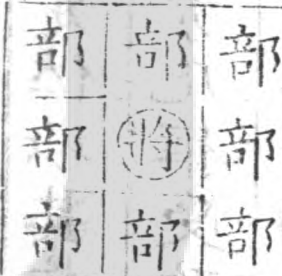 部部部
部將部
部部部